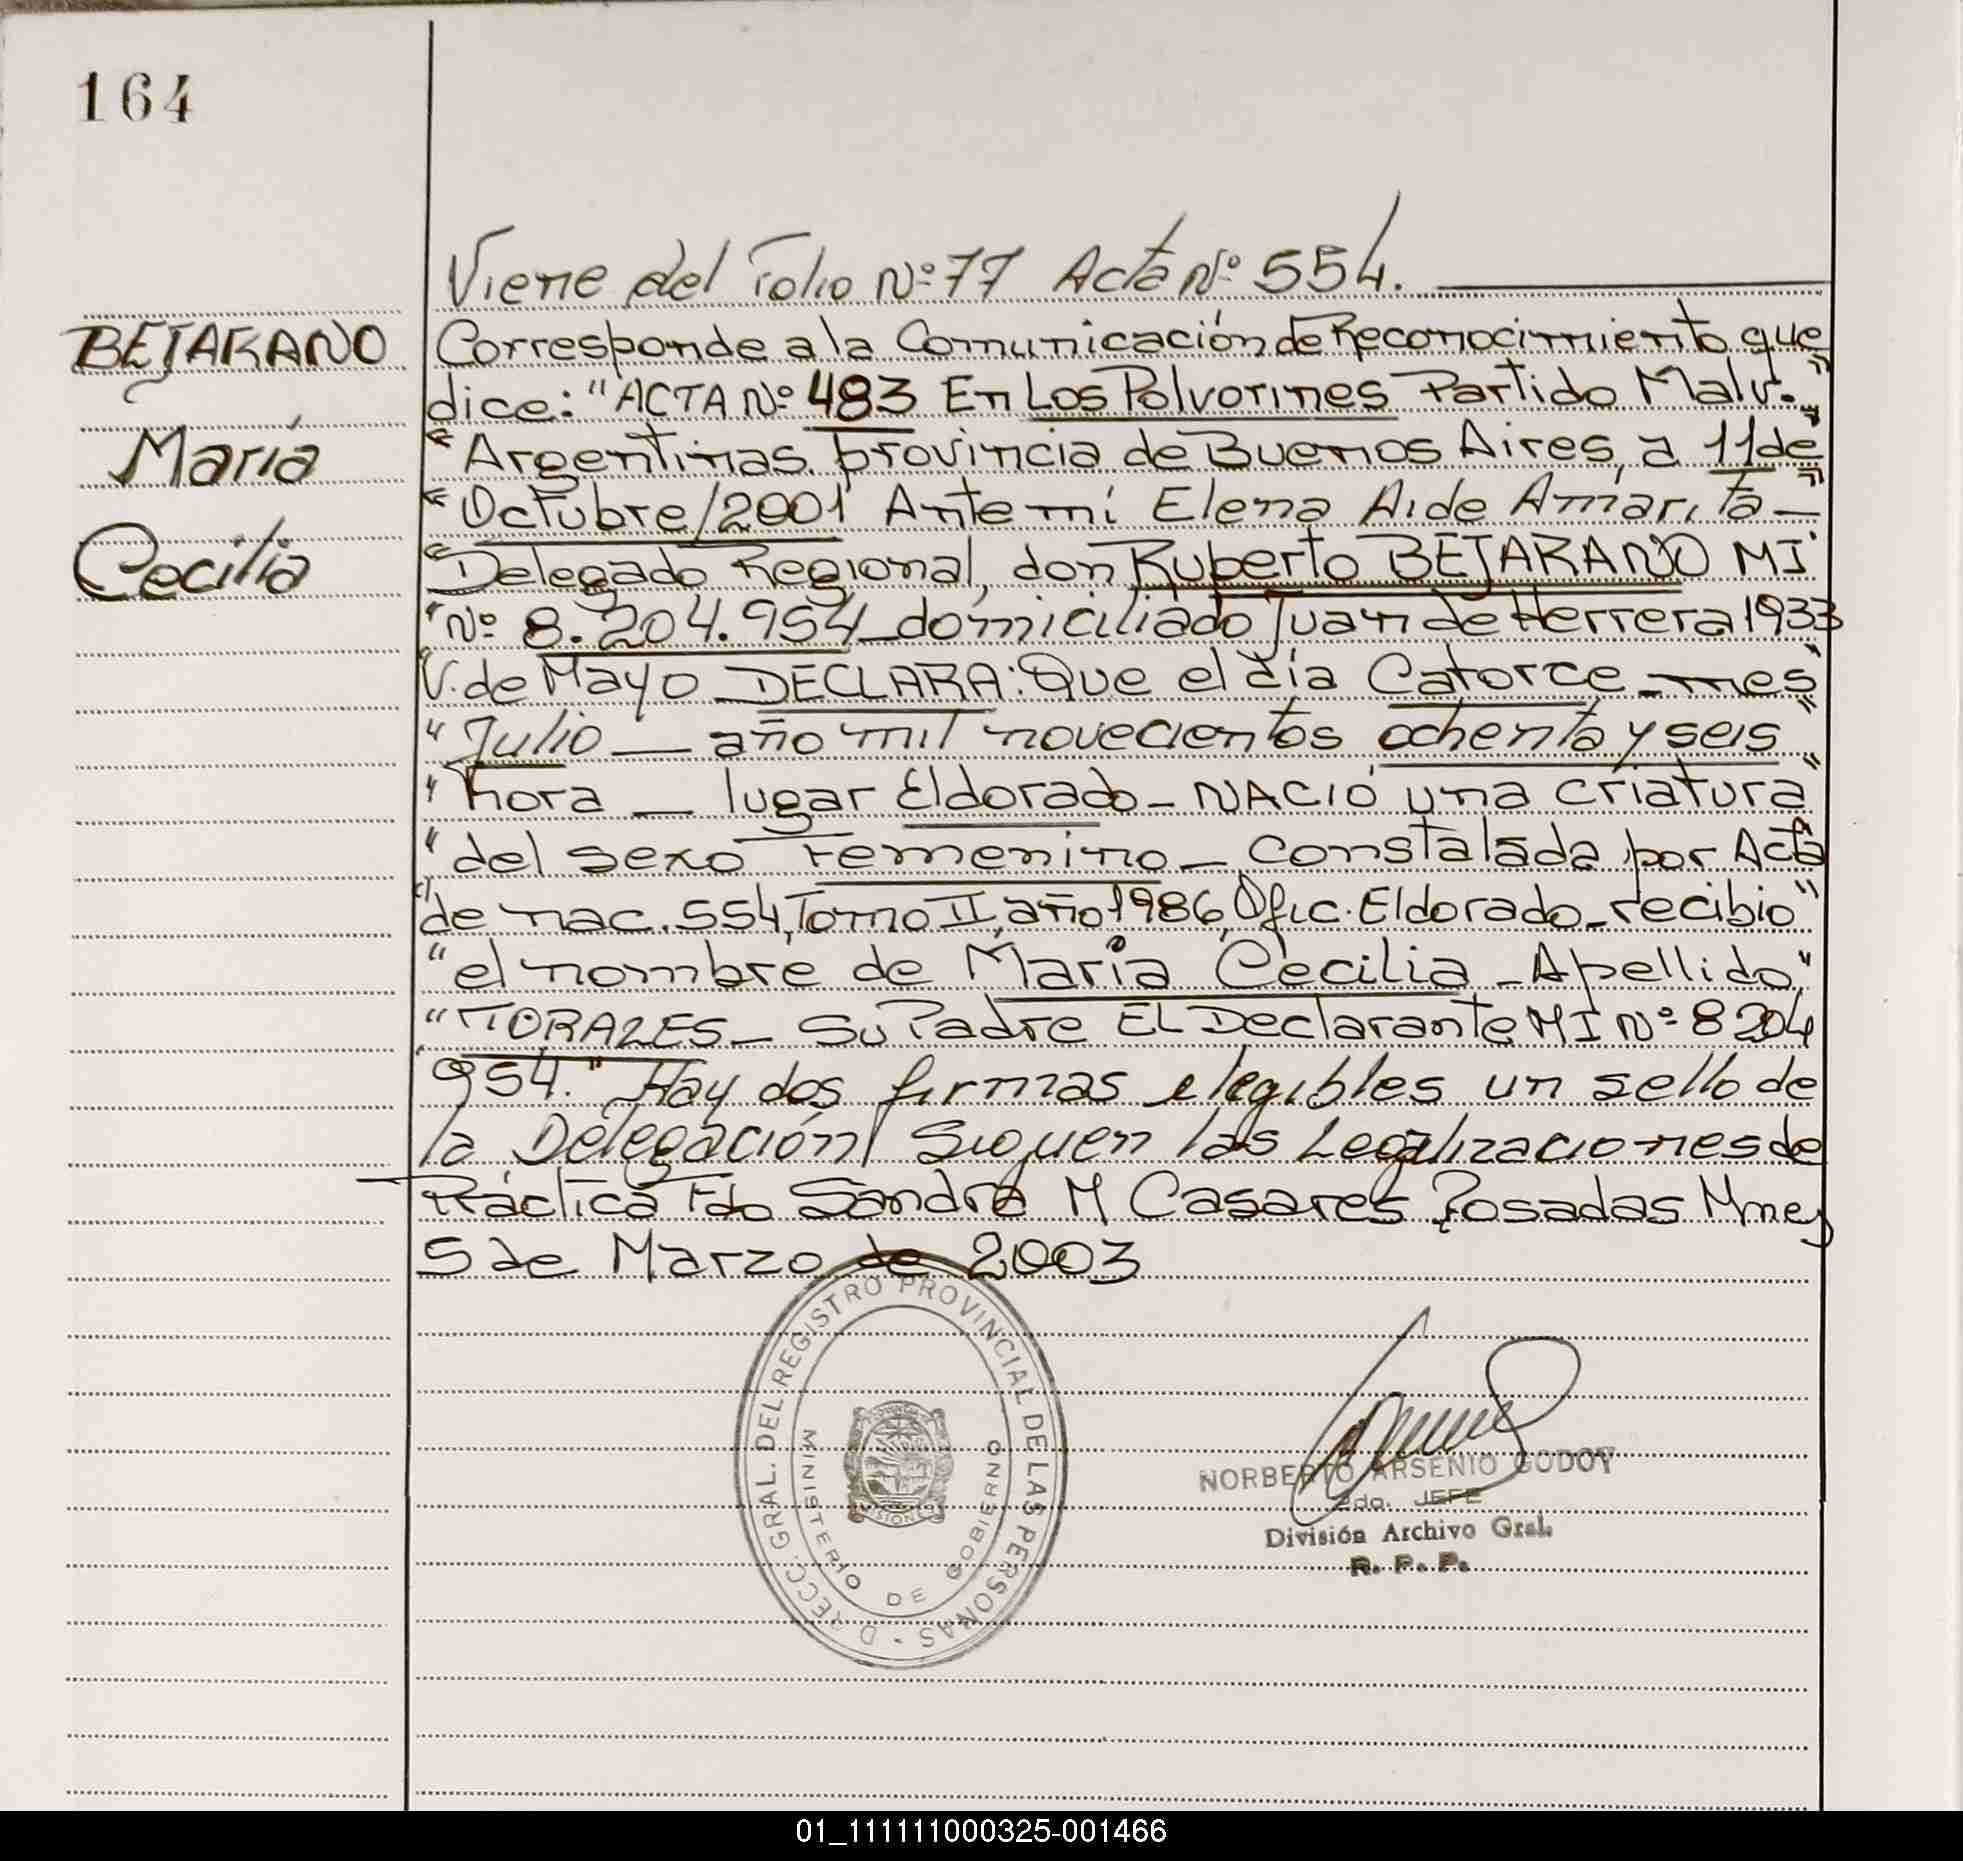 164
Viene del Folio Nº 77 Acta Nº 554.
BEJARANO
María
Cecilia
Corresponde a la Comunicación de Reconocimiento que
dice: "ACTA Nº 483 En Los Polvorines Partido Malv."
"Argentinas. provincia de Buenos Aires, a 11 de"
"Octubre/2001 Ante mí Elena Aide Amarita-"
"Delegado Regional, don Ruberto BEJARANO MI"
"Nº 8.204.954 domiciliado Juan de Herrera 1933
V. de Mayo DECLARA: Que el día Catorce - mes"
"Julio - año mil novecientos ochenta y seis"
"hora - lugar Eldorado - NACIÓ una criatura"
"del sexo Femenino - constalada por Acta
"de nac. 554, Tomo II, año 1986, Ofic. Eldorado - recibio"
"el nombre de Maria Cecilia - Apellido"
"MORALES - Su Padre EL Declarante MI Nº 8 204
954." Hay dos firmas elegibles un sello de
la Delegación Siguen las Legalizaciones de
Práctica Fdo Sandra M Casares Posadas Mnes
5 de Marzo de 2003
D RECC. GRAL. DEL REGISTRO PROVINCIAL DE LAS PERSONAS -
MINISTERIO DE GOBIERNO
NORBERTO ARSENIO GODOY
2do. JEFE
División Archivo Gral.
R. P. P.
01_111111000325-001466